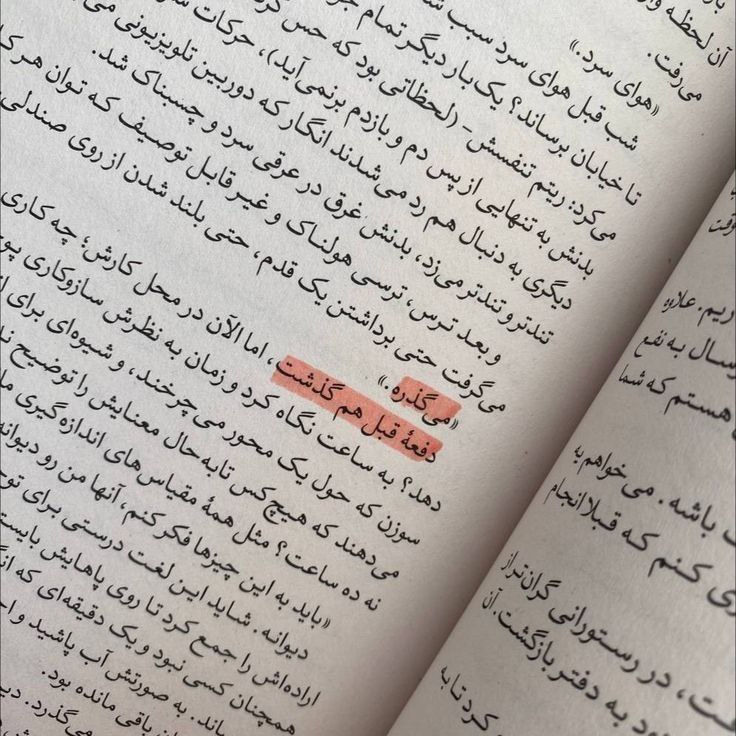 آن لحظه
می‌رفت.
«هوای سرد.»
شب قبل هوای سرد سبب
تا خیابان برساند؟ یک‌بار دیگر تمام
می‌کرد: ریتم تنفسش- (لحظاتی بود که حس
بدنش به تنهایی از پس دم و بازدم برنمی‌آید)، حرکات
دیگری به دنبال هم رد می‌شدند انگار که دوربین تلویزیونی
تندتر و تندتر می‌زد، بدنش غرق در عرقی سرد و چسبناک شد.
و بعد ترس، ترسی هولناک و غیرقابل توصیف که توان هر
می‌گرفت حتی برداشتن یک قدم، حتی بلند شدن از روی صندلی
«می‌گذره.»
دفعهٔ قبل هم گذشت، اما الآن در محل کارش؛ چه کاری
دهد؟ به ساعت نگاه کرد و زمان به نظرش سازوکاری
سوزن که حول یک محور می‌چرخند، و شیوه‌ای برای
می‌دهند که هیچ‌کس تابه‌حال معنایش را توضیح
نه ده ساعت؟ مثل همهٔ مقیاس‌های اندازه‌گیری
«باید به این چیزها فکر کنم، آنها من رو دیوانه
دیوانه. شاید این لغت درستی برای
اراده‌اش را جمع کرد تا روی پاهایش
همچنان کسی نبود و یک دقیقه‌ای که
به صورتش آب پاشید و
باقی مانده بود.
می‌گذرد.
ریم. علاوه
به نفع
هستم که شما
باشه. می‌خواهم به
کنم که قبلا انجام
در رستورانی گران‌تر از
به دفتر بازگشت. آن
کرد تا به